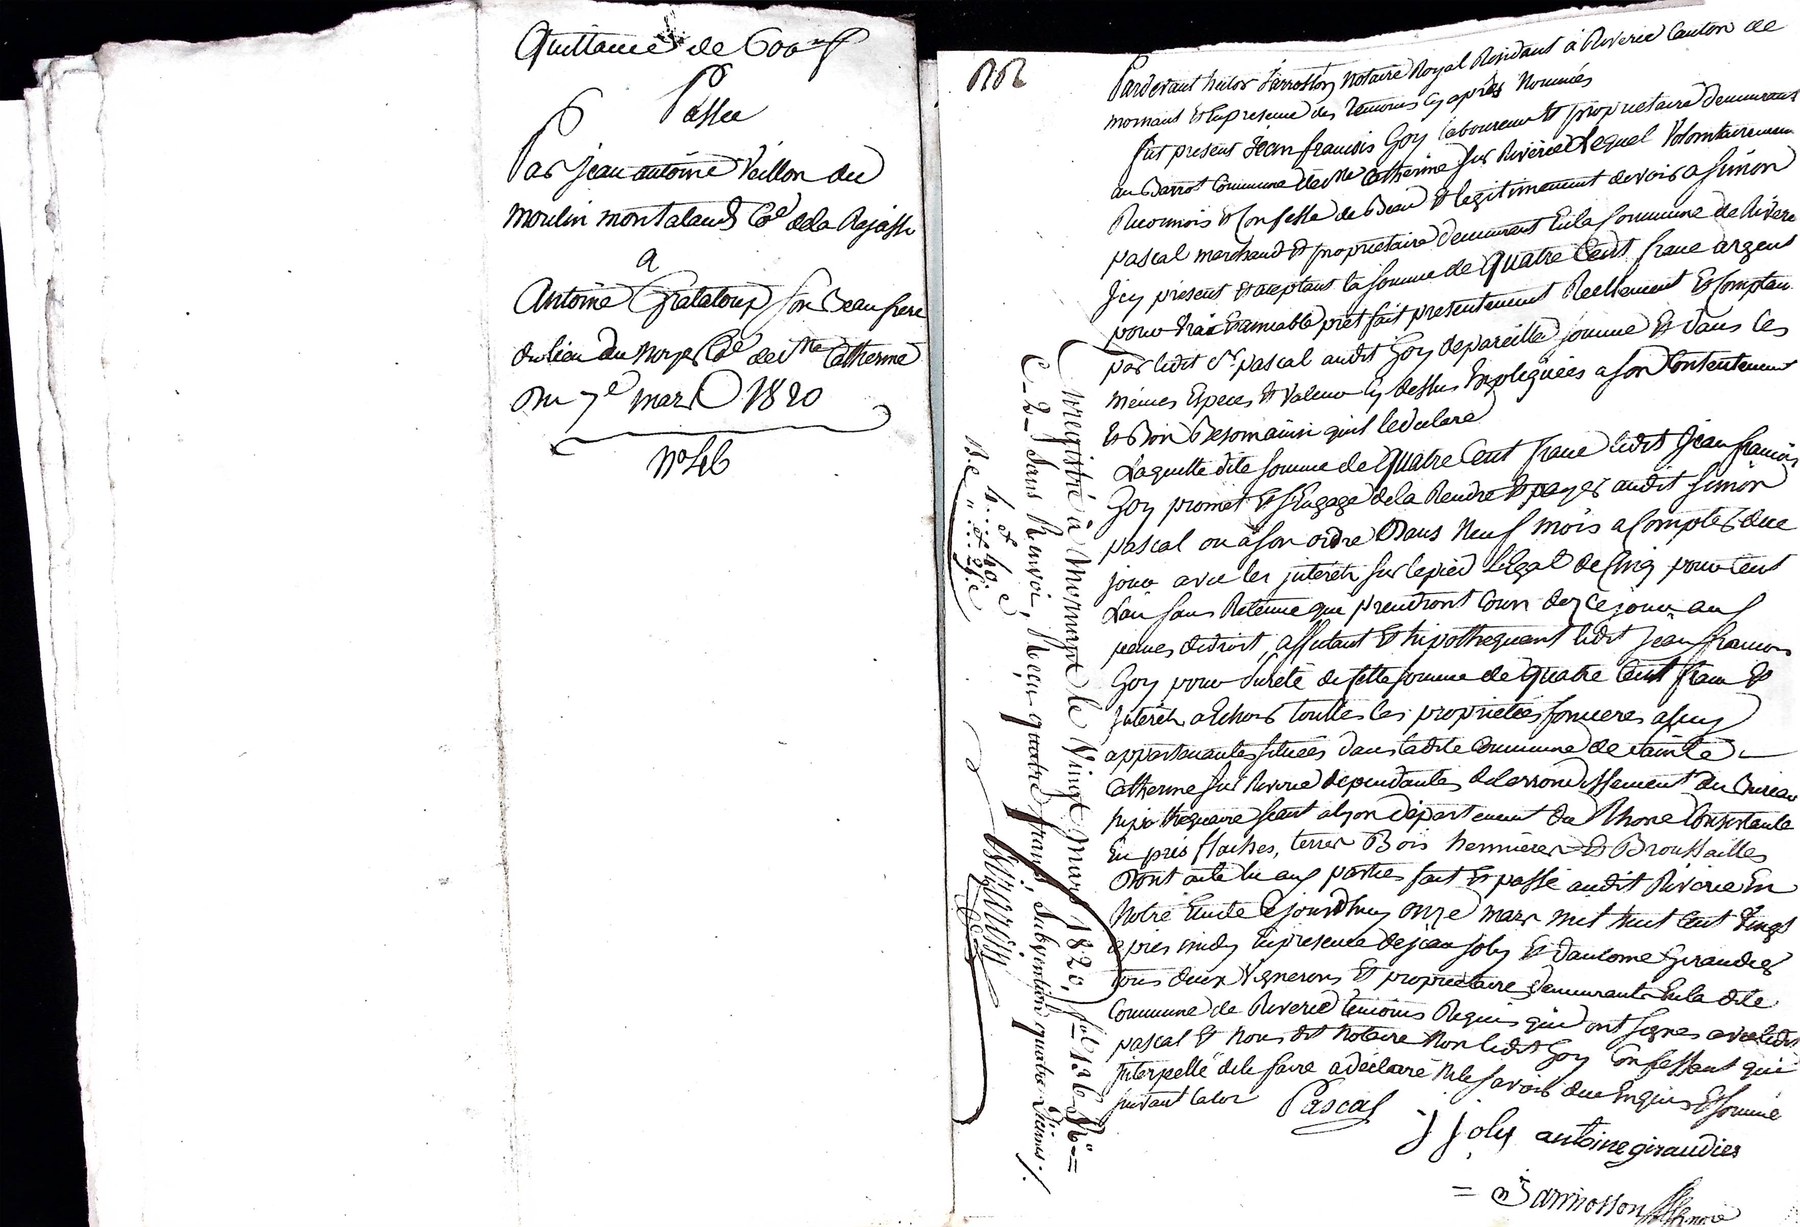 Quittance de 600 ff
Passee
Par jean antoine Veillon du
moulin montaland Cne dela Rajasse
a
Antoine Grataloup son Beaufrere
du lieu du Noyer Cne de Ste Catherine
Du 7e mars 1820
No 46
Pardevant huitor Jarrosson Notaire Royal Residant à Riverie Canton de
mornant Et Enpresence des temoins cy après Nommés
fut present Jean francois Goy laboureur Et proprietaire demeurant
au Barrot Commune de Ste Catherine sur Riverie Lequel Volontairement
Reconnois Et Confesse de Bien Et legitimement devoir a Simon
pascal marchand Et proprietaire demeurant En la Commune de Riverie
Icy present Et aceptant la somme de quatre Cent franc argent
pour vrai Et amiable prêt fait presentement Reellement Et Comptan
par ledit Sr pascal audit Goy de pareille somme Et dans les
mêmes Especes Et Valeur cy dessus Expliquées a son Contentement
Et Bon ainsi quil le declare
Laquelle dite somme de quatre Cent franc ledit Jean francois
Goy promet Et s'Engage de la Rendre Et payer audit Simon
pascal ou à son ordre Dans Neuf mois a Compter due
jour avec les interêts sur le pied Legal de Cinq pour Cent
L'an sans Retenue que prendront Cour dez ce jour aux
peines de droit, affectant Et hipothequant ledit Jean francois
Goy pour Sureté de cette somme de quatre Cent franc Et
Interêts a Echoir toutes les proprietées foncieres a luy
appartenantes situées dans ladite Commune de Sainte
Catherine sur Riverie dependantes de larrondissement du Bureau
hipothequaire seant a lyon département du Rhone Consistante
En pres flaches, terres Bois hermieres Et Broussailles
Dont acte lu aux parties fait Et passé audit Riverie En
Notre Etude Cejourdhuy onze mars mil huit Cent Vingt
après midy Enpresence de jean Joly Et dantoine Giraudier
tous deux Vignerons Et proprietaires demeurants En la dite
Commune de Riverie temoins Requis qui ont signes avec ledit
pascal Et Nous dit Notaire Non ledit Goy Confessant qui
Interpellé de le faire a déclaré Ne le savoir due Enquis Et sommé
suivant la loi
Pascal
J Joly antoine giraudier
= Jarrosson
Enregistré à Mornant le Vingt mars 1820, fol 136 Ro
C. 2. Sans Renvoi, Reçu quatre francs, Subvention quatre Dixmes./.
4.. et 40 c